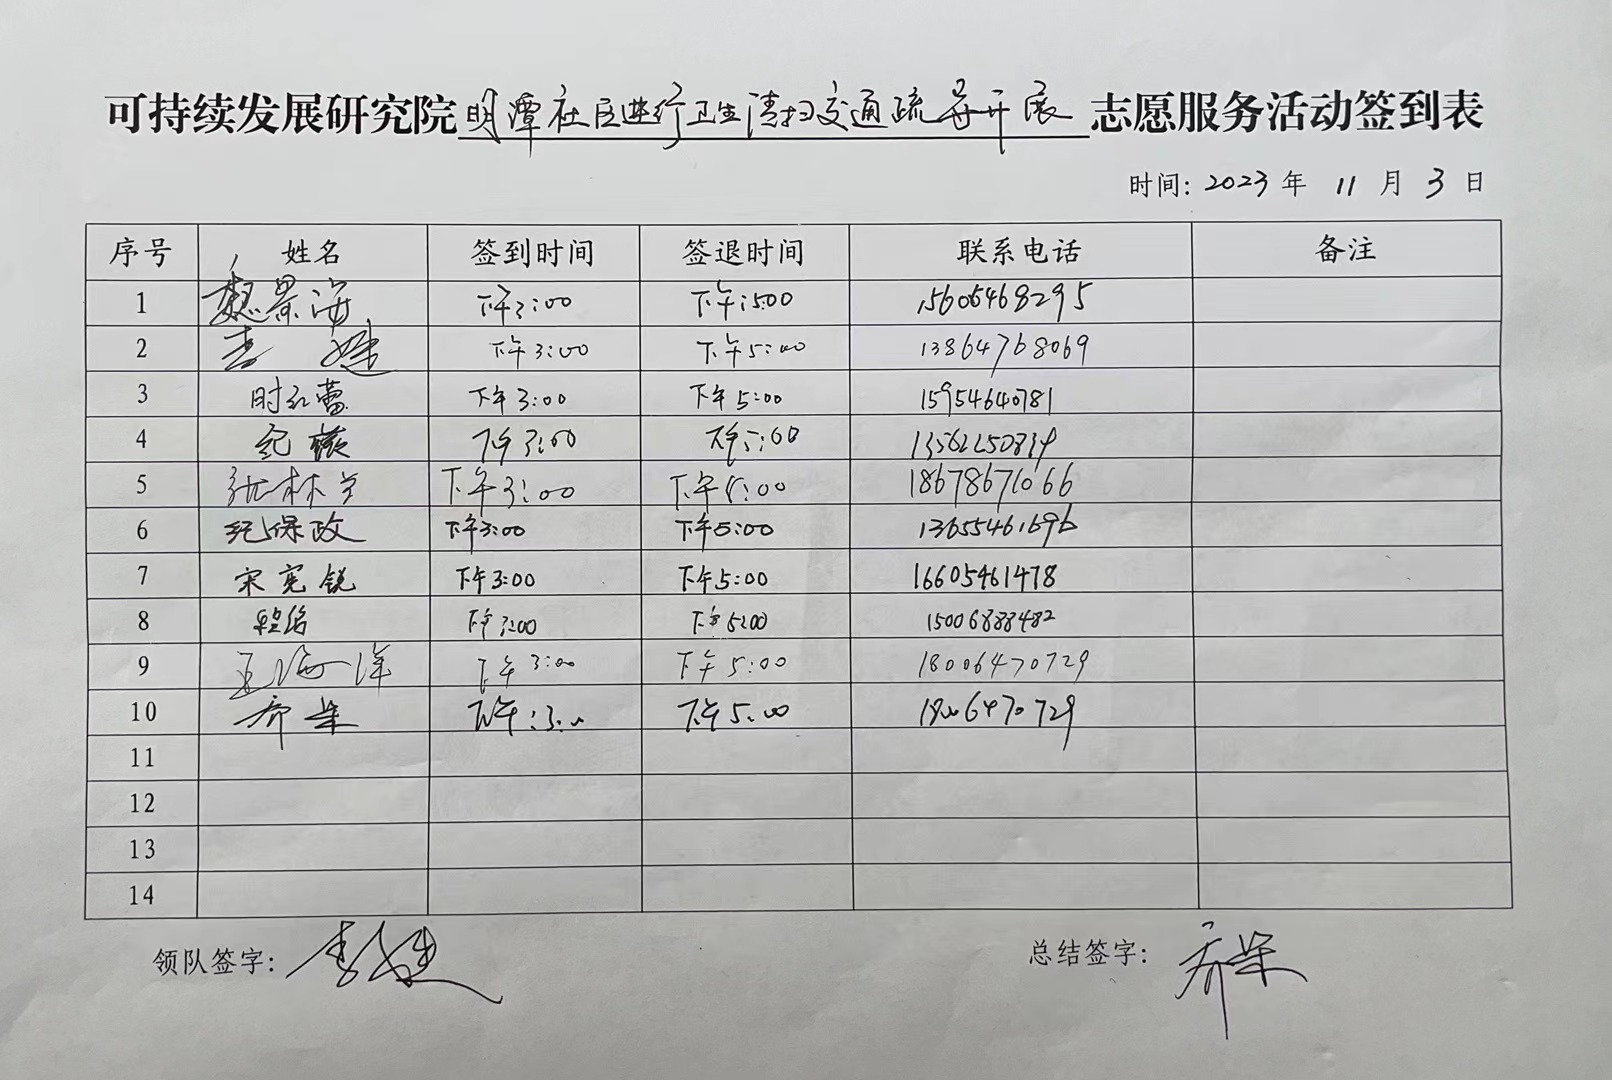 可持续发展研究院明潭社区进行卫生清扫交通疏导开展志愿服务活动签到表
时间: 2023 年 11 月 3 日
序号 姓名 签到时间 签退时间 联系电话 备注
1 魏景海 下午3:00 下午:5:00 15605468295
2 李 婕 下午3:00 下午5:00 13864768069
3 时红蕾 下午3:00 下午5:00 15954640781
4 纪 下午3:00 下午5:00 13562250839
5 张林 下午3:00 下午5:00 18678671066
6 纪保政 下午3:00 下午5:00 13655461696
7 宋宪锐 下午3:00 下午5:00 16605461478
8 下午3:00 下午5:00 15006888482
9 王海洋 下午3:00 下午5:00 18006470729
10 乔梁 下午:3:00 下午5:00 18006470729
11
12
13
14
领队签字: 李婕 总结签字: 乔梁